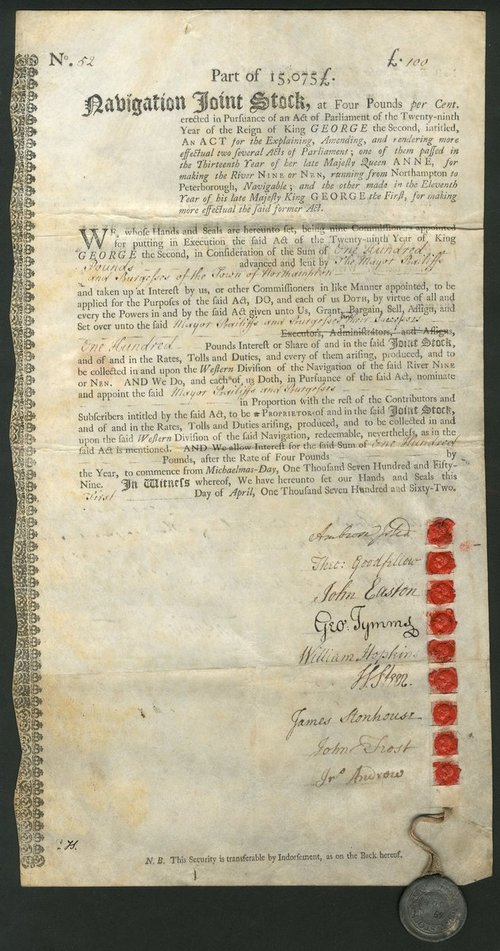 No. 52
£. 100
Part of 15,075£.
Navigation Joint Stock, at Four Pounds per Cent.
erected in Pursuance of an Act of Parliament of the Twenty-ninth
Year of the Reign of King GEORGE the Second, intitled,
AN ACT for the Explaining, Amending, and rendering more
effectual two several Acts of Parliament; one of them passed in
the Thirteenth Year of her late Majesty Queen ANNE, for
making the River NINE or NEN, running from Northampton to
Peterborough, Navigable; and the other made in the Eleventh
Year of his late Majesty King GEORGE the First, for making
more effectual the said former Act.
WE, whose Hands and Seals are hereunto set, being nine Commissioners appointed
for putting in Execution the said Act of the Twenty-ninth Year of King
GEORGE the Second, in Consideration of the Sum of One Hundred
Pounds advanced and lent by The Mayor Bailiffs
and Burgesses of the Town of Northampton
and taken up at Interest by us, or other Commissioners in like Manner appointed, to be
applied for the Purposes of the said Act, DO, and each of us DOTH, by virtue of all and
every the Powers in and by the said Act given unto Us, Grant, Bargain, Sell, Assign, and
Set over unto the said Mayor Bailiffs and Burgesses their Successors
Executors, Administrators, and Assigns,
One Hundred Pounds Interest or Share of and in the said Joint Stock,
and of and in the Rates, Tolls and Duties, and every of them arising, produced, and to
be collected in and upon the Western Division of the Navigation of the said River NINE
or NEN. AND We Do, and each of us Doth, in Pursuance of the said Act, nominate
and appoint the said Mayor Bailiffs and Burgesses
in Proportion with the rest of the Contributors and
Subscribers intitled by the said Act, to be a PROPRIETOR of and in the said Joint Stock,
and of and in the Rates, Tolls and Duties arising, produced, and to be collected in and
upon the said Western Division of the said Navigation, redeemable, nevertheless, as in the
said Act is mentioned. AND We allow Interest for the said Sum of One Hundred
Pounds, after the Rate of Four Pounds by
the Year, to commence from Michaelmas-Day, One Thousand Seven Hundred and Fifty-
Nine. In Witness whereof, We have hereunto set our Hands and Seals this
First Day of April, One Thousand Seven Hundred and Sixty-Two.
Theo: Goodfellow
John Easton
Geo. Tymms
William Hopkins
James Stonhouse
John Frost
Jno. Andrew
N. B. This Security is transferable by Indorsement, as on the Back hereof.